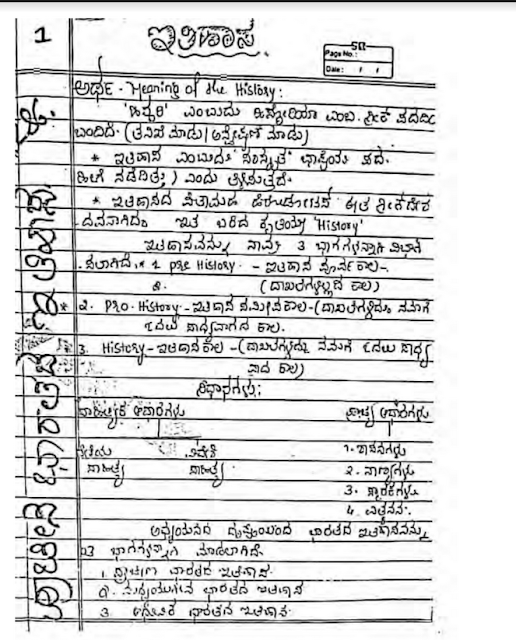 1
ಇತಿಹಾಸ
50
Page No.:
Date: / /
ಅರ್ಥ - Meaning of the History:
'ಹಿಸ್ಟರಿ' ಎಂಬುದು ಹಿಸ್ಟೋರಿಯಾ ಎಂಬ ಗ್ರೀಕ ಪದದಿಂ
ಬಂದಿದೆ. (ತನಿಖೆ ಮಾಡು/ಅನ್ವೇಷಣೆ ಮಾಡು)
* ಇತಿಹಾಸ ಎಂಬುದು 'ಸಂಸ್ಕೃತ' ಭಾಷೆಯ ಪದ.
ಹೀಗೆ ನಡೆದಿತ್ತು;) ಎಂದು ತಿಳಿಸುತ್ತದೆ.
* ಇತಿಹಾಸದ ಪಿತಾಮಹ ಹೆರೊಡೋಟಸ್ ಈತ ಗ್ರೀಕದೇಶ
ದವನಾಗಿದ್ದು ಇತ ಬರೆದ ಕೃತಿಯು 'History'
ಇತಿಹಾಸವನ್ನು ನಾವು 3 ಭಾಗಗಳನ್ನಾಗಿ ವಿಭಾಗಿ
ಸಲಾಗಿದೆ. * 1 pre History - ಇತಿಹಾಸ ಪೂರ್ವ ಕಾಲ -
(ದಾಖಲೆಗಳಿಲ್ಲದ ಕಾಲ)
* 2. Pro. History - ಇತಿಹಾಸ ಸಮೀಪ ಕಾಲ - (ದಾಖಲೆಗಳಿದ್ದು ನಮಗೆ
ಓದಲು ಸಾಧ್ಯವಾಗದ ಕಾಲ.
3. History - ಇತಿಹಾಸ ಕಾಲ - (ದಾಖಲೆಗಳಿದ್ದು ನಮಗೆ ಓದಲು ಸಾಧ್ಯ
ವಾದ ಕಾಲ)
ವಿಧಾನಗಳು:
ಸಾಹಿತ್ಯಿಕ ಆಧಾರಗಳು ಪ್ರಾಚ್ಯ ಆಧಾರಗಳು
ದೇಶಿಯ ವಿದೇಶಿ 1. ಶಾಸನಗಳು
ಸಾಹಿತ್ಯ ಸಾಹಿತ್ಯ 2. ನಾಣ್ಯಗಳು
3. ಸ್ಮಾರಕಗಳು
4. ಉತ್ಖನನ.
ಅಧ್ಯಯನದ ದೃಷ್ಟಿಯಿಂದ ಭಾರತದ ಇತಿಹಾಸವನ್ನು
03 ಭಾಗಗಳನ್ನಾಗಿ ಮಾಡಲಾಗಿದೆ.
1. ಪ್ರಾಚೀನ ಭಾರತದ ಇತಿಹಾಸ
2. ಮಧ್ಯಯುಗೀನ ಭಾರತದ ಇತಿಹಾಸ
3. ಆಧುನಿಕ ಭಾರತದ ಇತಿಹಾಸ
ಪ್ರಾಚೀನ ಭಾರತದ ಇತಿಹಾಸ